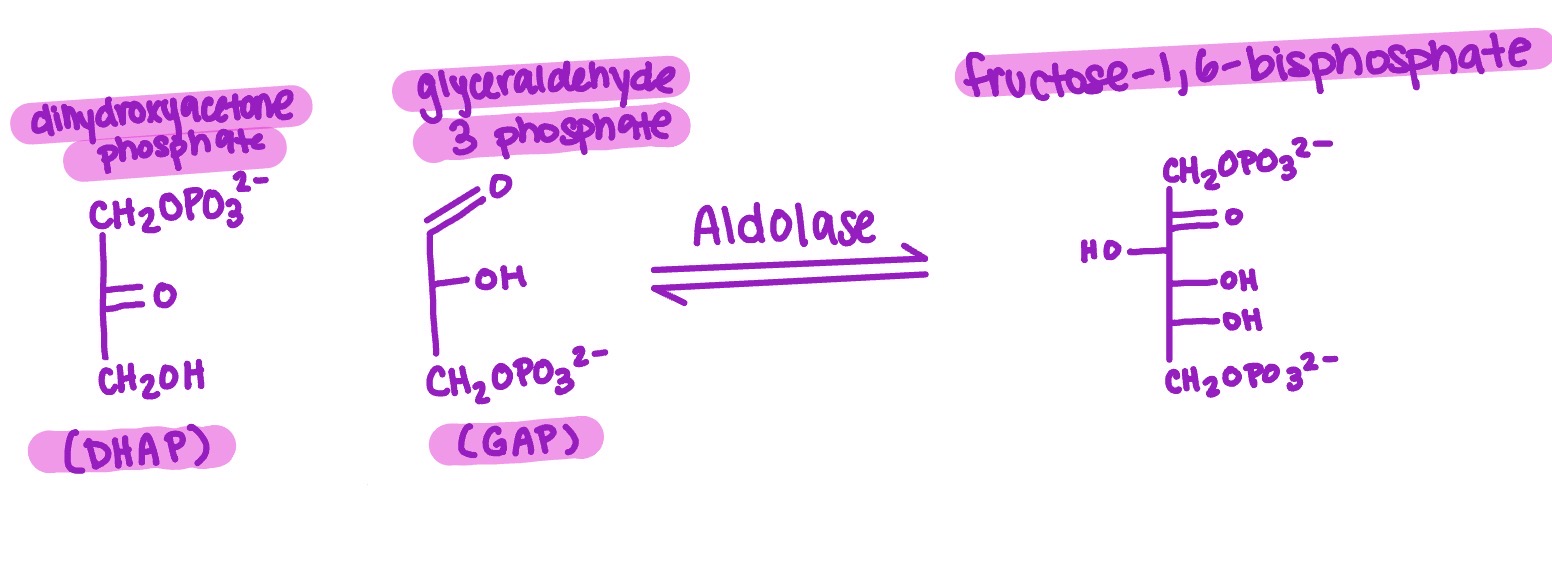 dihydroxyacetone
phosphate
CH₂OPO₃²⁻
O
CH₂OH
(DHAP)
glyceraldehyde
3 phosphate
O
OH
CH₂OPO₃²⁻
(GAP)
Aldolase
fructose-1,6-bisphosphate
CH₂OPO₃²⁻
O
HO
OH
OH
CH₂OPO₃²⁻